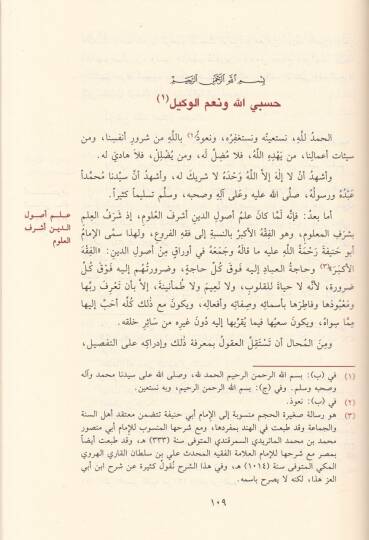 بسم الله الرحمن الرحيم
حسبي الله ونعم الوكيل(١)
الحمدُ للَّهِ، نستعينُه ونستغفرُه، ونعوذُ(٢) باللَّهِ من شرورِ أنفسِنا، ومن
سيئات أعمالِنا، من يَهْدِهِ اللَّهُ، فلا مُضِلَّ لَه، ومن يُضْلِلْ، فلا هاديَ له.
وأشهدُ أنْ لا إلهَ إلاَّ اللَّهُ وَحْدَهُ لا شريكَ له، وأشهدُ أنَّ سيِّدنا مُحمَّداً
عَبْدُهُ ورسولُه، صلَّى الله عليه وعَلَى آلِهِ وصحبِه، وسلَّم تسليماً كثيراً.
أما بعدُ: فإنَّه لَمَّا كانَ علمُ أصولِ الدينِ أشرفَ العُلومِ، إذ شَرَفُ العِلمِ
علم أصول
الدين أشرف
العلوم
بشرَفِ المعلوم، وهو الفِقْهُ الأكبرُ بالنسبةِ إلى فقهِ الفروعِ، ولهذا سمَّى الإمامُ
أبو حَنيفةَ رَحْمَةُ اللَّهِ عليه ما قالَهُ وجَمَعَهُ في أوراقٍ مِنْ أصولِ الدينِ: «الفِقْهَ
الأكبَرَ»(٣) وحاجةُ العِبادِ إليه فَوقَ كُلِّ حاجةٍ، وضرورتُهُم إليه فوقَ كُلِّ
ضرورة، لأنَّه لا حياةَ للقلوبِ، ولا نَعيمَ ولا طُمأنينةَ، إلاَّ بأن تَعْرِفَ ربَّها
ومَعْبُودَها وفاطِرَها بأسمائِه وصِفاتِه وأفعالِه، ويكونَ مع ذلك كُلِّه أحَبَّ إليها
مِمَّا سِواه، ويكونَ سعيُها فيما يُقَرِّبُها إليه دُونَ غيرِه من سَائِرِ خلقه.
ومِنَ المُحالِ أن تَسْتَقِلَّ العقولُ بمعرفة ذلك وإدراكِه على التفصيلِ،
(١) في (ب): بسم الله الرحمن الرحيم الحمد لله، وصلى الله على سيدنا محمد وآله
وصحبه وسلم. وفي (ج): بسم الله الرحمن الرحيم، وبه نستعين.
(٢) في (ب): نعوذ.
(٣) هو رسالة صغيرة الحجم منسوبة إلى الإمام أبي حنيفة تتضمن معتقد أهل السنة
والجماعة وقد طبعت في الهند بمفردها، ومع شرحها المنسوب للإمام أبي منصور
محمد بن محمد الماتريدي السمرقندي المتوفى سنة (٣٣٣) هـ، وقد طبعت أيضاً
بمصر مع شرحها للإمام العلامة الفقيه المحدث علي بن سلطان القاري الهروي
المكي المتوفى سنة (١٠١٤) هـ، وفي هذا الشرح نُقول كثيرة عن شرح ابن أبي
العز هذا، لكنه لا يصرح باسمه.
١٠٩